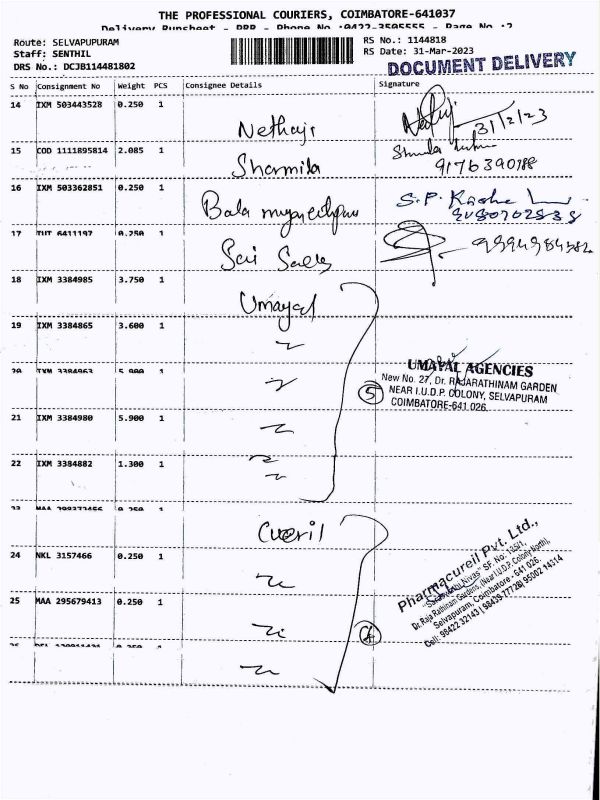 THE PROFESSIONAL COURIERS, COIMBATORE-641037
Delivery Runsheet - PRR - Phone No :0422-3505555 - Page No :2
Route: SELVAPUPURAM
Staff: SENTHIL
DRS No.: DCJB114481802
RS No.: 1144818
RS Date: 31-Mar-2023
DOCUMENT DELIVERY
S No Consignment No Weight PCS Consignee Details Signature
14 IXM 503443528 0.250 1
Nethaji
31/2/23
15 COD 1111895814 2.085 1
Sharmila
16 IXM 503362851 0.250 1
Bala
S.P.
17 TUT 6411197 0.250 1
Sai
18 IXM 3384985 3.750 1
Umayal
19 IXM 3384865 3.600 1
20 IXM 3384963 5.900 1
5
UMAYAL AGENCIES
New No. 27, Dr. RAJARATHINAM GARDEN
NEAR I.U.D.P. COLONY, SELVAPURAM
COIMBATORE-641 026.
21 IXM 3384980 5.900 1
22 IXM 3384882 1.300 1
23 MAA 0.250 1
Cueril
24 NKL 3157466 0.250 1
25 MAA 295679413 0.250 1
26 0.250 1
Pharmacureil Pvt. Ltd.,
"Saraswathi Nivas" SF. No: 135/1,
Dr. Raja Rathinam Gardens, (Near I.U.D.P. Colony North),
Selvapuram, Coimbatore - 641 026.
Cell: 98422 32143 | 98439 77728 | 95002 14314